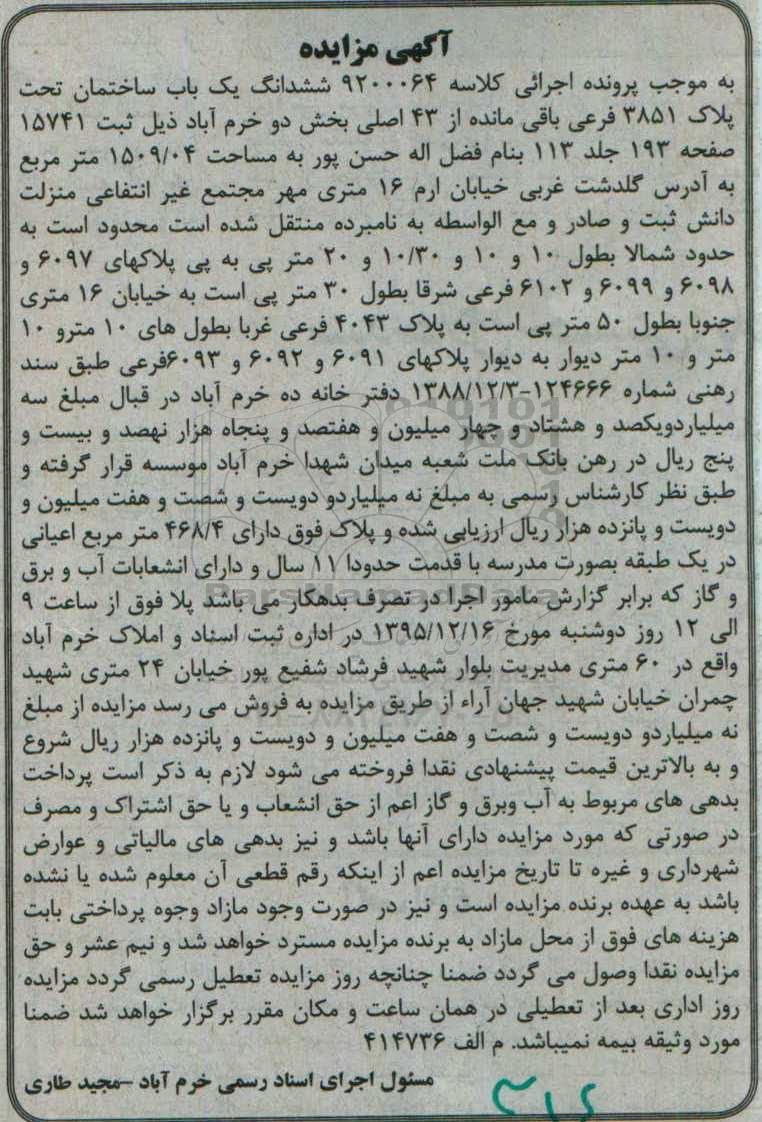 آگهی مزایده
به موجب پرونده اجرائی کلاسه ۹۲۰۰۰۶۴ ششدانگ یک باب ساختمان تحت
پلاک ۳۸۵۱ فرعی باقی مانده از ۴۳ اصلی بخش دو خرم آباد ذیل ثبت ۱۵۷۴۱
صفحه ۱۹۳ جلد ۱۱۳ بنام فضل اله حسن پور به مساحت ۱۵۰۹/۰۴ متر مربع
به آدرس گلدشت غربی خیابان ارم ۱۶ متری مهر مجتمع غیر انتفاعی منزلت
دانش ثبت و صادر و مع الواسطه به نامبرده منتقل شده است محدود است به
حدود شمالا بطول ۱۰ و ۱۰ و ۱۰/۳۰ و ۲۰ متر پی به پی پلاکهای ۶۰۹۷ و
۶۰۹۸ و ۶۰۹۹ و ۶۱۰۲ فرعی شرقا بطول ۳۰ متر پی است به خیابان ۱۶ متری
جنوبا بطول ۵۰ متر پی است به پلاک ۴۰۴۳ فرعی غربا بطول های ۱۰ مترو ۱۰
متر و ۱۰ متر دیوار به دیوار پلاکهای ۶۰۹۱ و ۶۰۹۲ و ۶۰۹۳فرعی طبق سند
رهنی شماره ۱۲۴۶۶۶-۱۳۸۸/۱۲/۳ دفتر خانه ده خرم آباد در قبال مبلغ سه
میلیاردویکصد و هشتاد و چهار میلیون و هفتصد و پنجاه هزار نهصد و بیست و
پنج ریال در رهن بانک ملت شعبه میدان شهدا خرم آباد موسسه قرار گرفته و
طبق نظر کارشناس رسمی به مبلغ نه میلیاردو دویست و شصت و هفت میلیون و
دویست و پانزده هزار ریال ارزیابی شده و پلاک فوق دارای ۴۶۸/۴ متر مربع اعیانی
در یک طبقه بصورت مدرسه با قدمت حدودا ۱۱ سال و دارای انشعابات آب و برق
و گاز که برابر گزارش مامور اجرا در تصرف بدهکار می باشد پلا فوق از ساعت ۹
الی ۱۲ روز دوشنبه مورخ ۱۳۹۵/۱۲/۱۶ در اداره ثبت اسناد و املاک خرم آباد
واقع در ۶۰ متری مدیریت بلوار شهید فرشاد شفیع پور خیابان ۲۴ متری شهید
چمران خیابان شهید جهان آراء از طریق مزایده به فروش می رسد مزایده از مبلغ
نه میلیاردو دویست و شصت و هفت میلیون و دویست و پانزده هزار ریال شروع
و به بالاترین قیمت پیشنهادی نقدا فروخته می شود لازم به ذکر است پرداخت
بدهی های مربوط به آب وبرق و گاز اعم از حق انشعاب و یا حق اشتراک و مصرف
در صورتی که مورد مزایده دارای آنها باشد و نیز بدهی های مالیاتی و عوارض
شهرداری و غیره تا تاریخ مزایده اعم از اینکه رقم قطعی آن معلوم شده یا نشده
باشد به عهده برنده مزایده است و نیز در صورت وجود مازاد وجوه پرداختی بابت
هزینه های فوق از محل مازاد به برنده مزایده مسترد خواهد شد و نیم عشر و حق
مزایده نقدا وصول می گردد ضمنا چنانچه روز مزایده تعطیل رسمی گردد مزایده
روز اداری بعد از تعطیلی در همان ساعت و مکان مقرر برگزار خواهد شد ضمنا
مورد وثیقه بیمه نمیباشد. م الف ۴۱۴۷۳۶
مسئول اجرای اسناد رسمی خرم آباد -مجید طاری
ParsNamadData